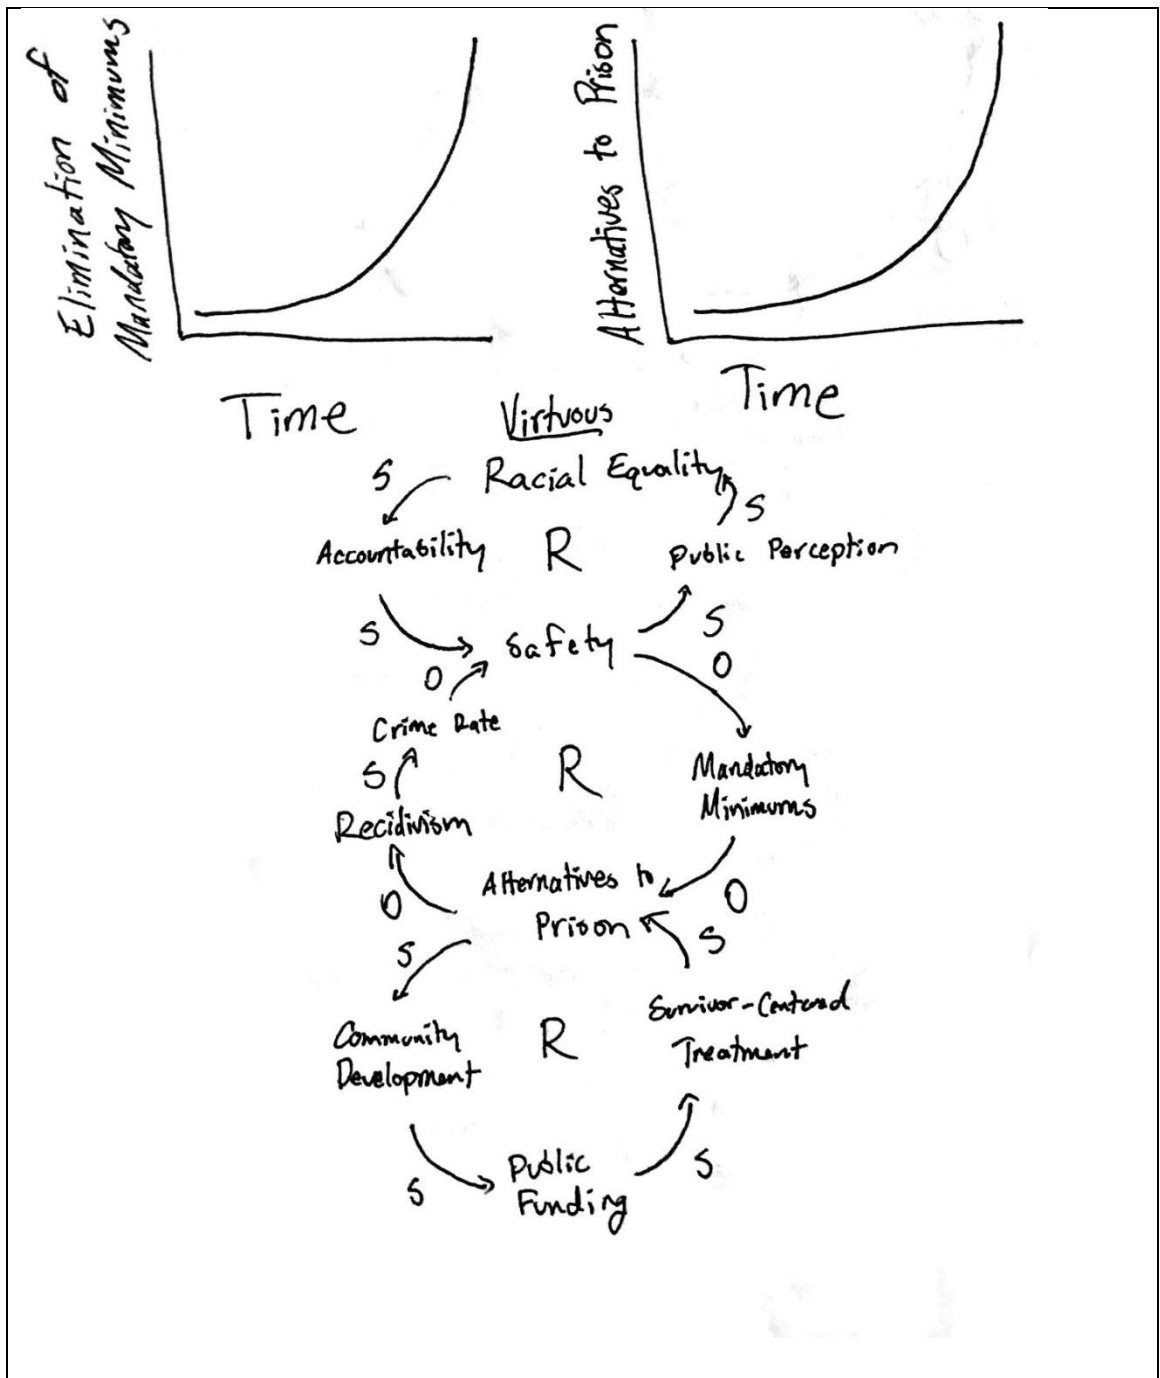 Elimination of
Mandatory Minimums
Time
Alternatives to Prison
Time
Virtuous
S
Racial Equality
S
Accountability
R
Public Perception
S
Safety
S
O
O
Crime Rate
S
R
Mandatory
Minimums
Recidivism
Alternatives to
Prison
O
O
S
S
Community
Development
R
Survivor-Centered
Treatment
S
Public
Funding
S